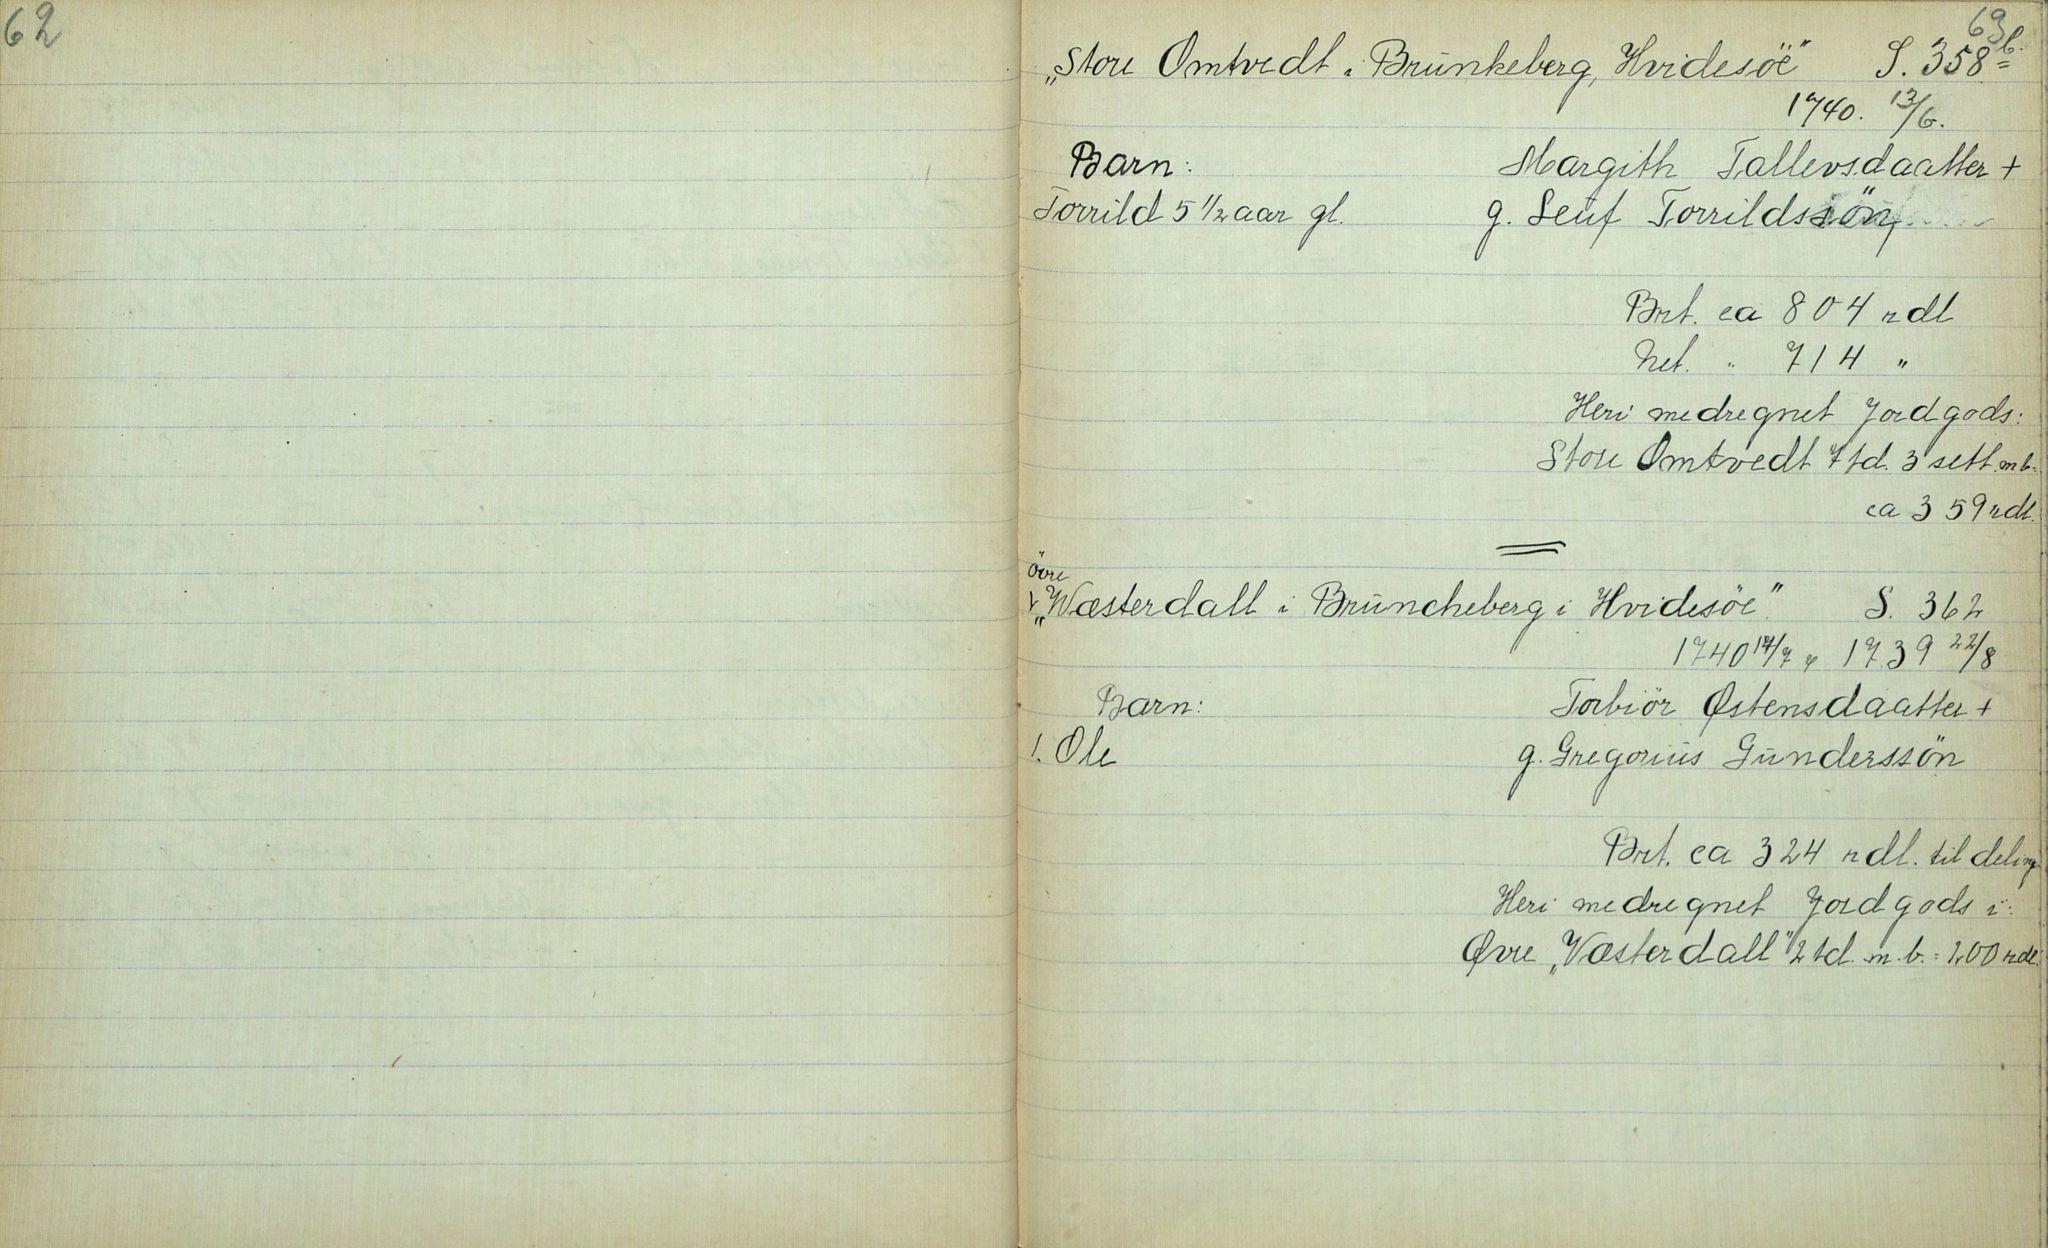 62
63
„Store Omtvedt i Brünkeberg, Hvidesöe" S. 358 b.
1740. 13/6.
Barn: Margith Tallevsdaatter +
Torrild 5 1/2 aar gl. g. Leüf Torrildssön,
Brt. ca 804 rdl
Net. " 714 "
Heri medregnet Jordgods:
Store Omtvedt 7 td. 3 sett. m b.
ca 359 rdl.
övre
„Wæsterdall i Brüncheberg i Hvidesöe" S. 362
1740 17/7 & 1739 22/8
Barn: Torbiör Østensdaatter +
1. Ole g. Gregorius Günderssön
Brt. ca 324 rdl. til deling
Heri medregnet Jordgods i:
Øvre „Væsterdall" 2 td. m. b. = 200 rdl.